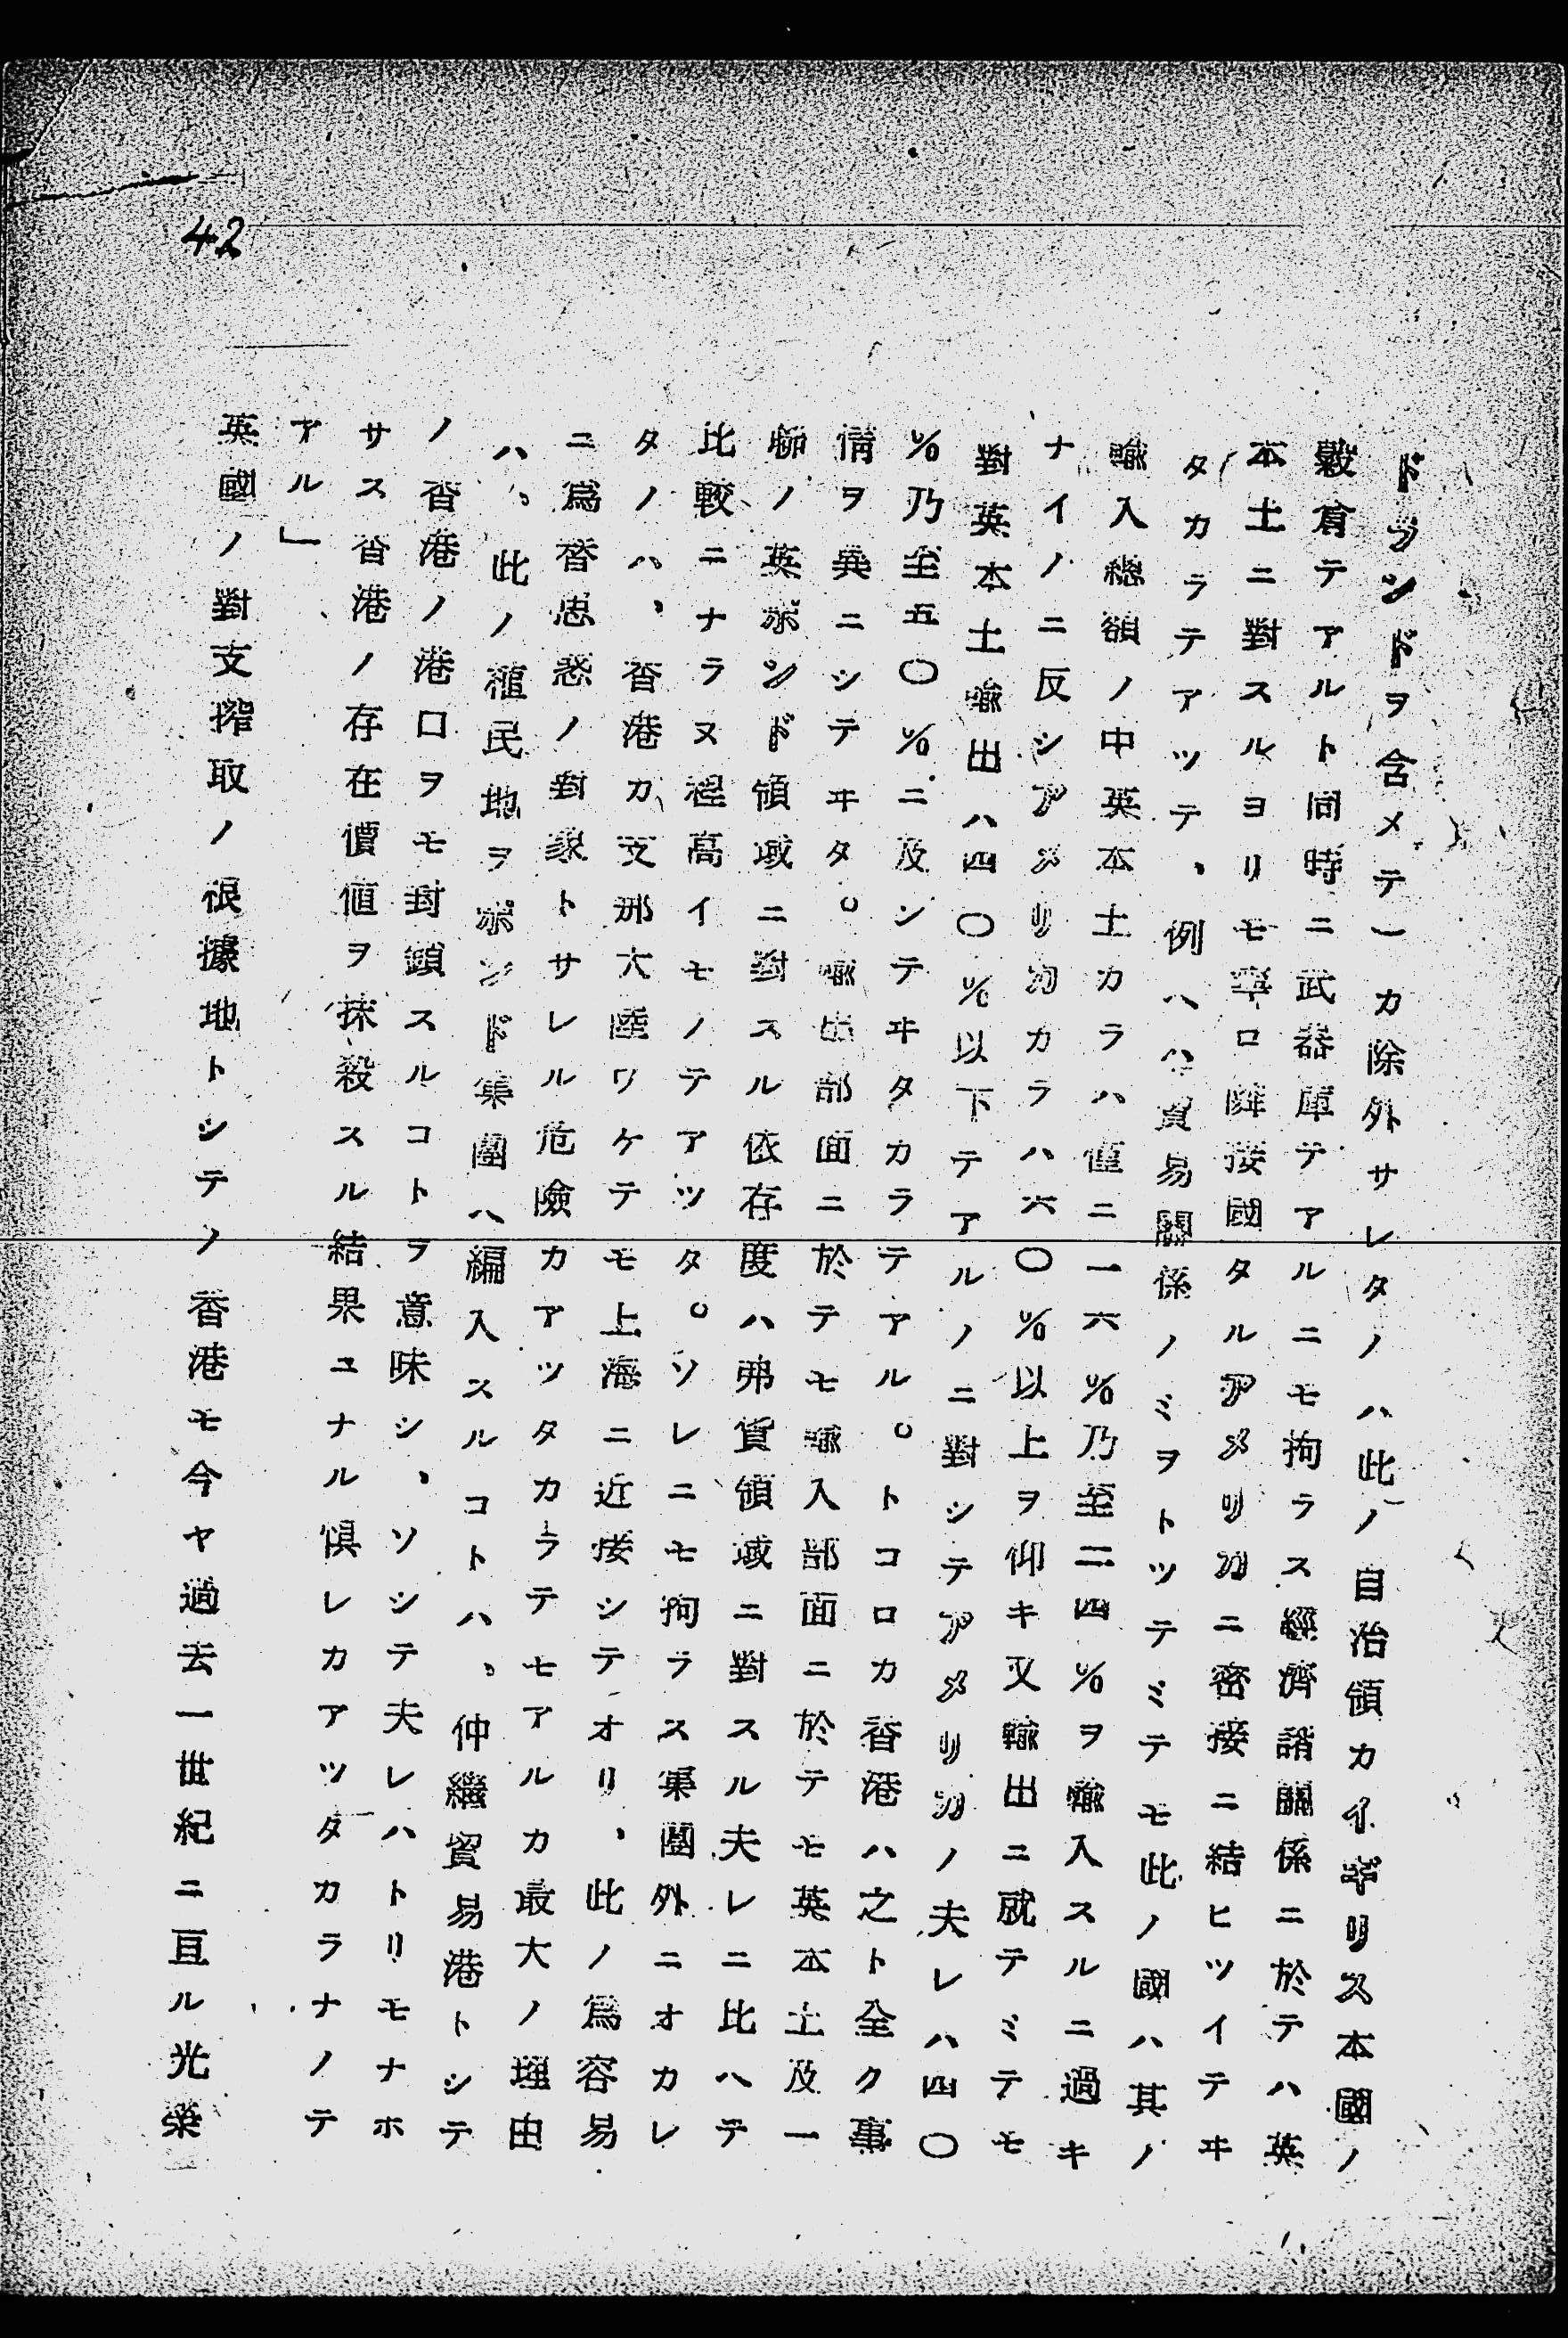 42
ドランドヲ含メテ)カ除外サレタノハ此ノ自治領カイギリス本國ノ
穀倉テアルト同時ニ武器庫テアルニモ拘ラス經濟諸關係ニ於テハ英
本土ニ對スルヨリモ寧ロ隣接國タルアメリカニ密接ニ結ヒツイテヰ
タカラテアツテ、例ヘハ貿易關係ノミヲトツテミテモ此ノ國ハ其ノ
輸入總額ノ中英本土カラハ僅ニ一六%乃至二四%ヲ輸入スルニ過キ
ナイノニ反シアメリカカラハ六〇%以上ヲ仰キ又輸出ニ就テミテモ
對英本土輸出ハ四〇%以下テアルノニ對シテアメリカノ夫レハ四〇
%乃至五〇%ニ及ンテヰタカラテアル。トコロカ香港ハ之ト全ク事
情ヲ異ニシテヰタ。輸出部面ニ於テモ輸入部面ニ於テモ英本土及一
聯ノ英ポンド領域ニ對スル依存度ハ弗貨領域ニ對スル夫レニ比ヘテ
比較ニナラヌ程高イモノテアツタ。ソレニモ拘ラス集團外ニオカレ
タノハ、香港カ支那大陸ワケテモ上海ニ近接シテオリ、此ノ爲容易
ニ爲替思惑ノ對象トサレル危險カアツタカラテモアルカ最大ノ理由
ハ、此ノ植民地ヲポンド集團ヘ編入スルコトハ、仲繼貿易港トシテ
ノ香港ノ港口ヲモ封鎖スルコトヲ意味シ、ソシテ夫レハトリモナホ
サス香港ノ存在價値ヲ抹殺スル結果ニナル惧レカアツタカラナノテ
アル」
英國ノ對支搾取ノ根據地トシテノ香港モ今ヤ過去一世紀ニ亘ル光榮